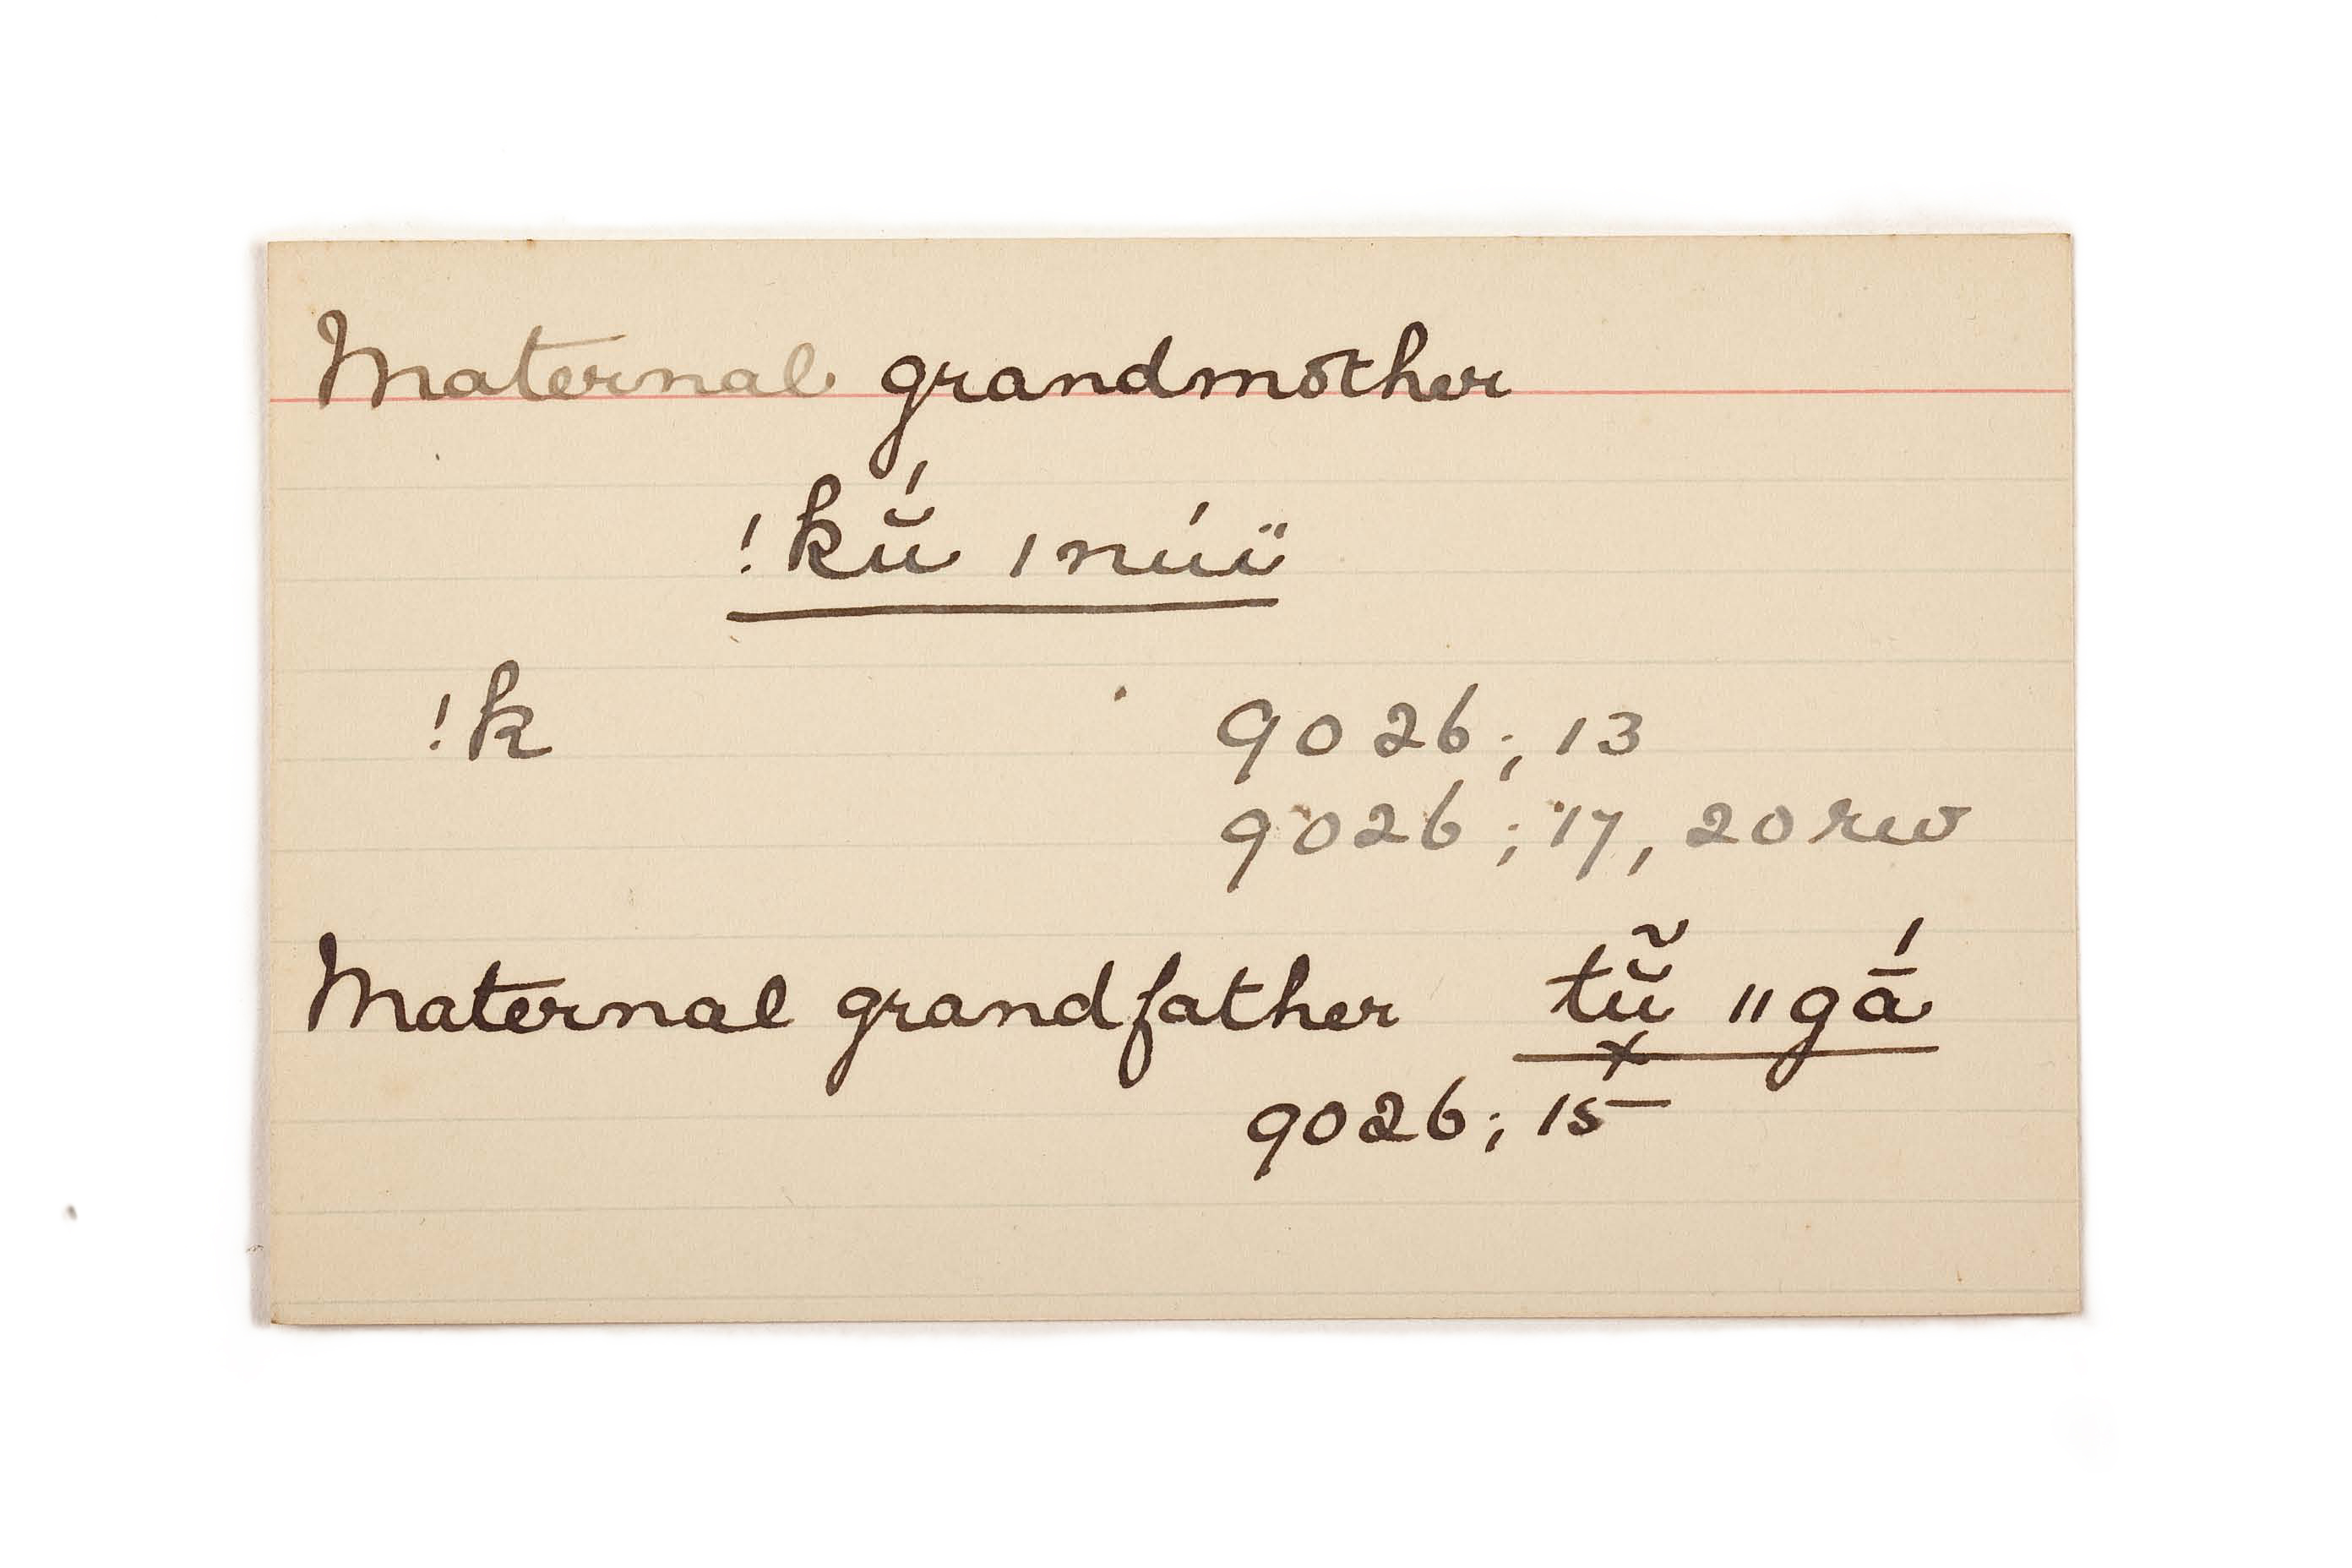 Maternal grandmother
!kŭ́ ǀnúï
!k 9026; 13
9026; 17, 20 rev
Maternal grandfather tŭ̃ ǁgā́
9026; 15